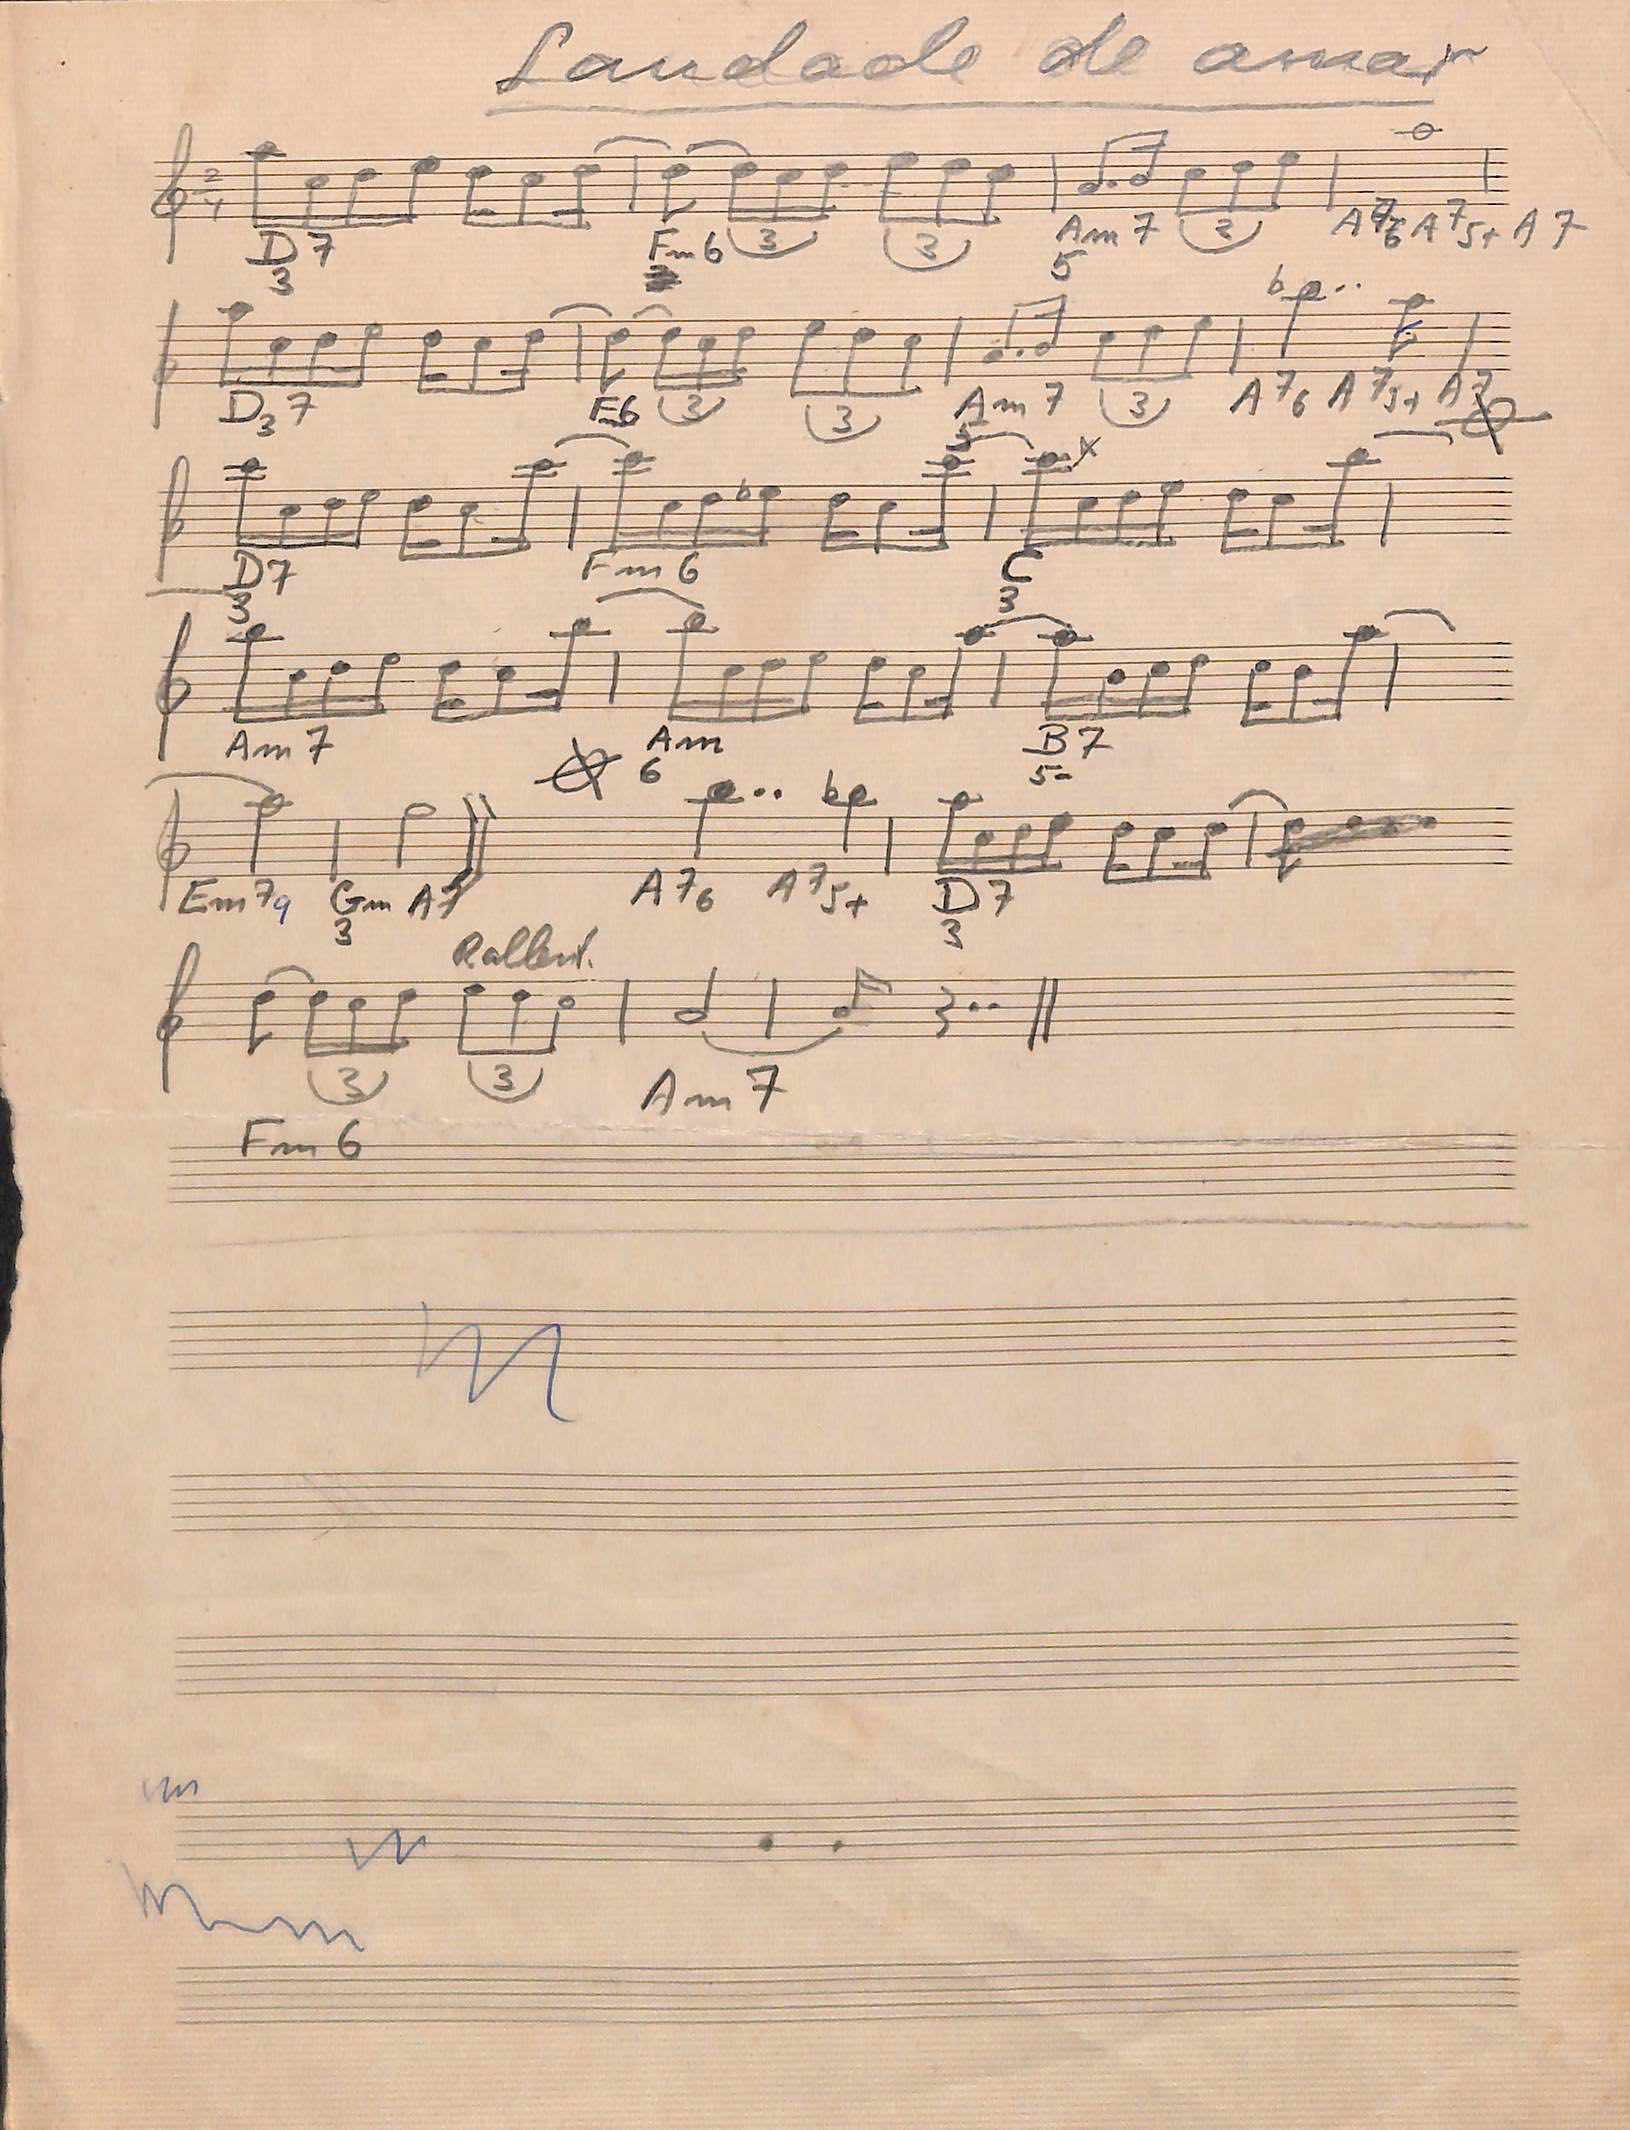 Saudade de amar
2
4
D7 Fm6 3 3 Am7 3 A76 A75+ A7
3 5
D37 Fm6 3 3 Am7 3 A76 A75+ A7
5
D7 Fm6 C
3 3
Am7 Am B7
6 5-
Em79 Gm A7 A76 A75+ D7
3 3
Rallent.
3 3 Am7
Fm6